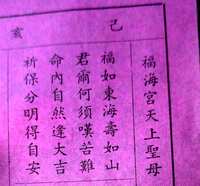 己亥
福海宮天上聖母
福如東海壽如山
君爾何須嘆苦難
命內自然逢大吉
祈保分明得自安